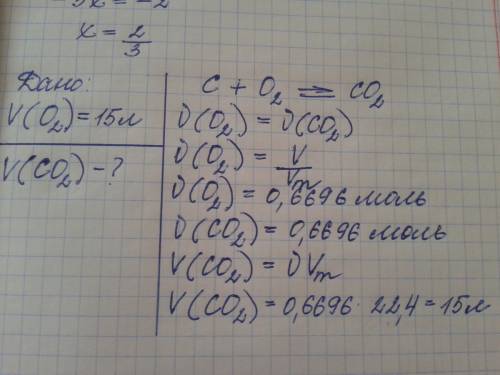 -3x = -2
x = 2/3
Дано:
V(O₂) = 15л
V(CO₂) - ?
C + O₂ = CO₂
ν(O₂) = ν(CO₂)
ν(O₂) = V/Vm
ν(O₂) = 0,6696 моль
ν(CO₂) = 0,6696 моль
V(CO₂) = νVm
V(CO₂) = 0,6696 · 22,4 = 15л